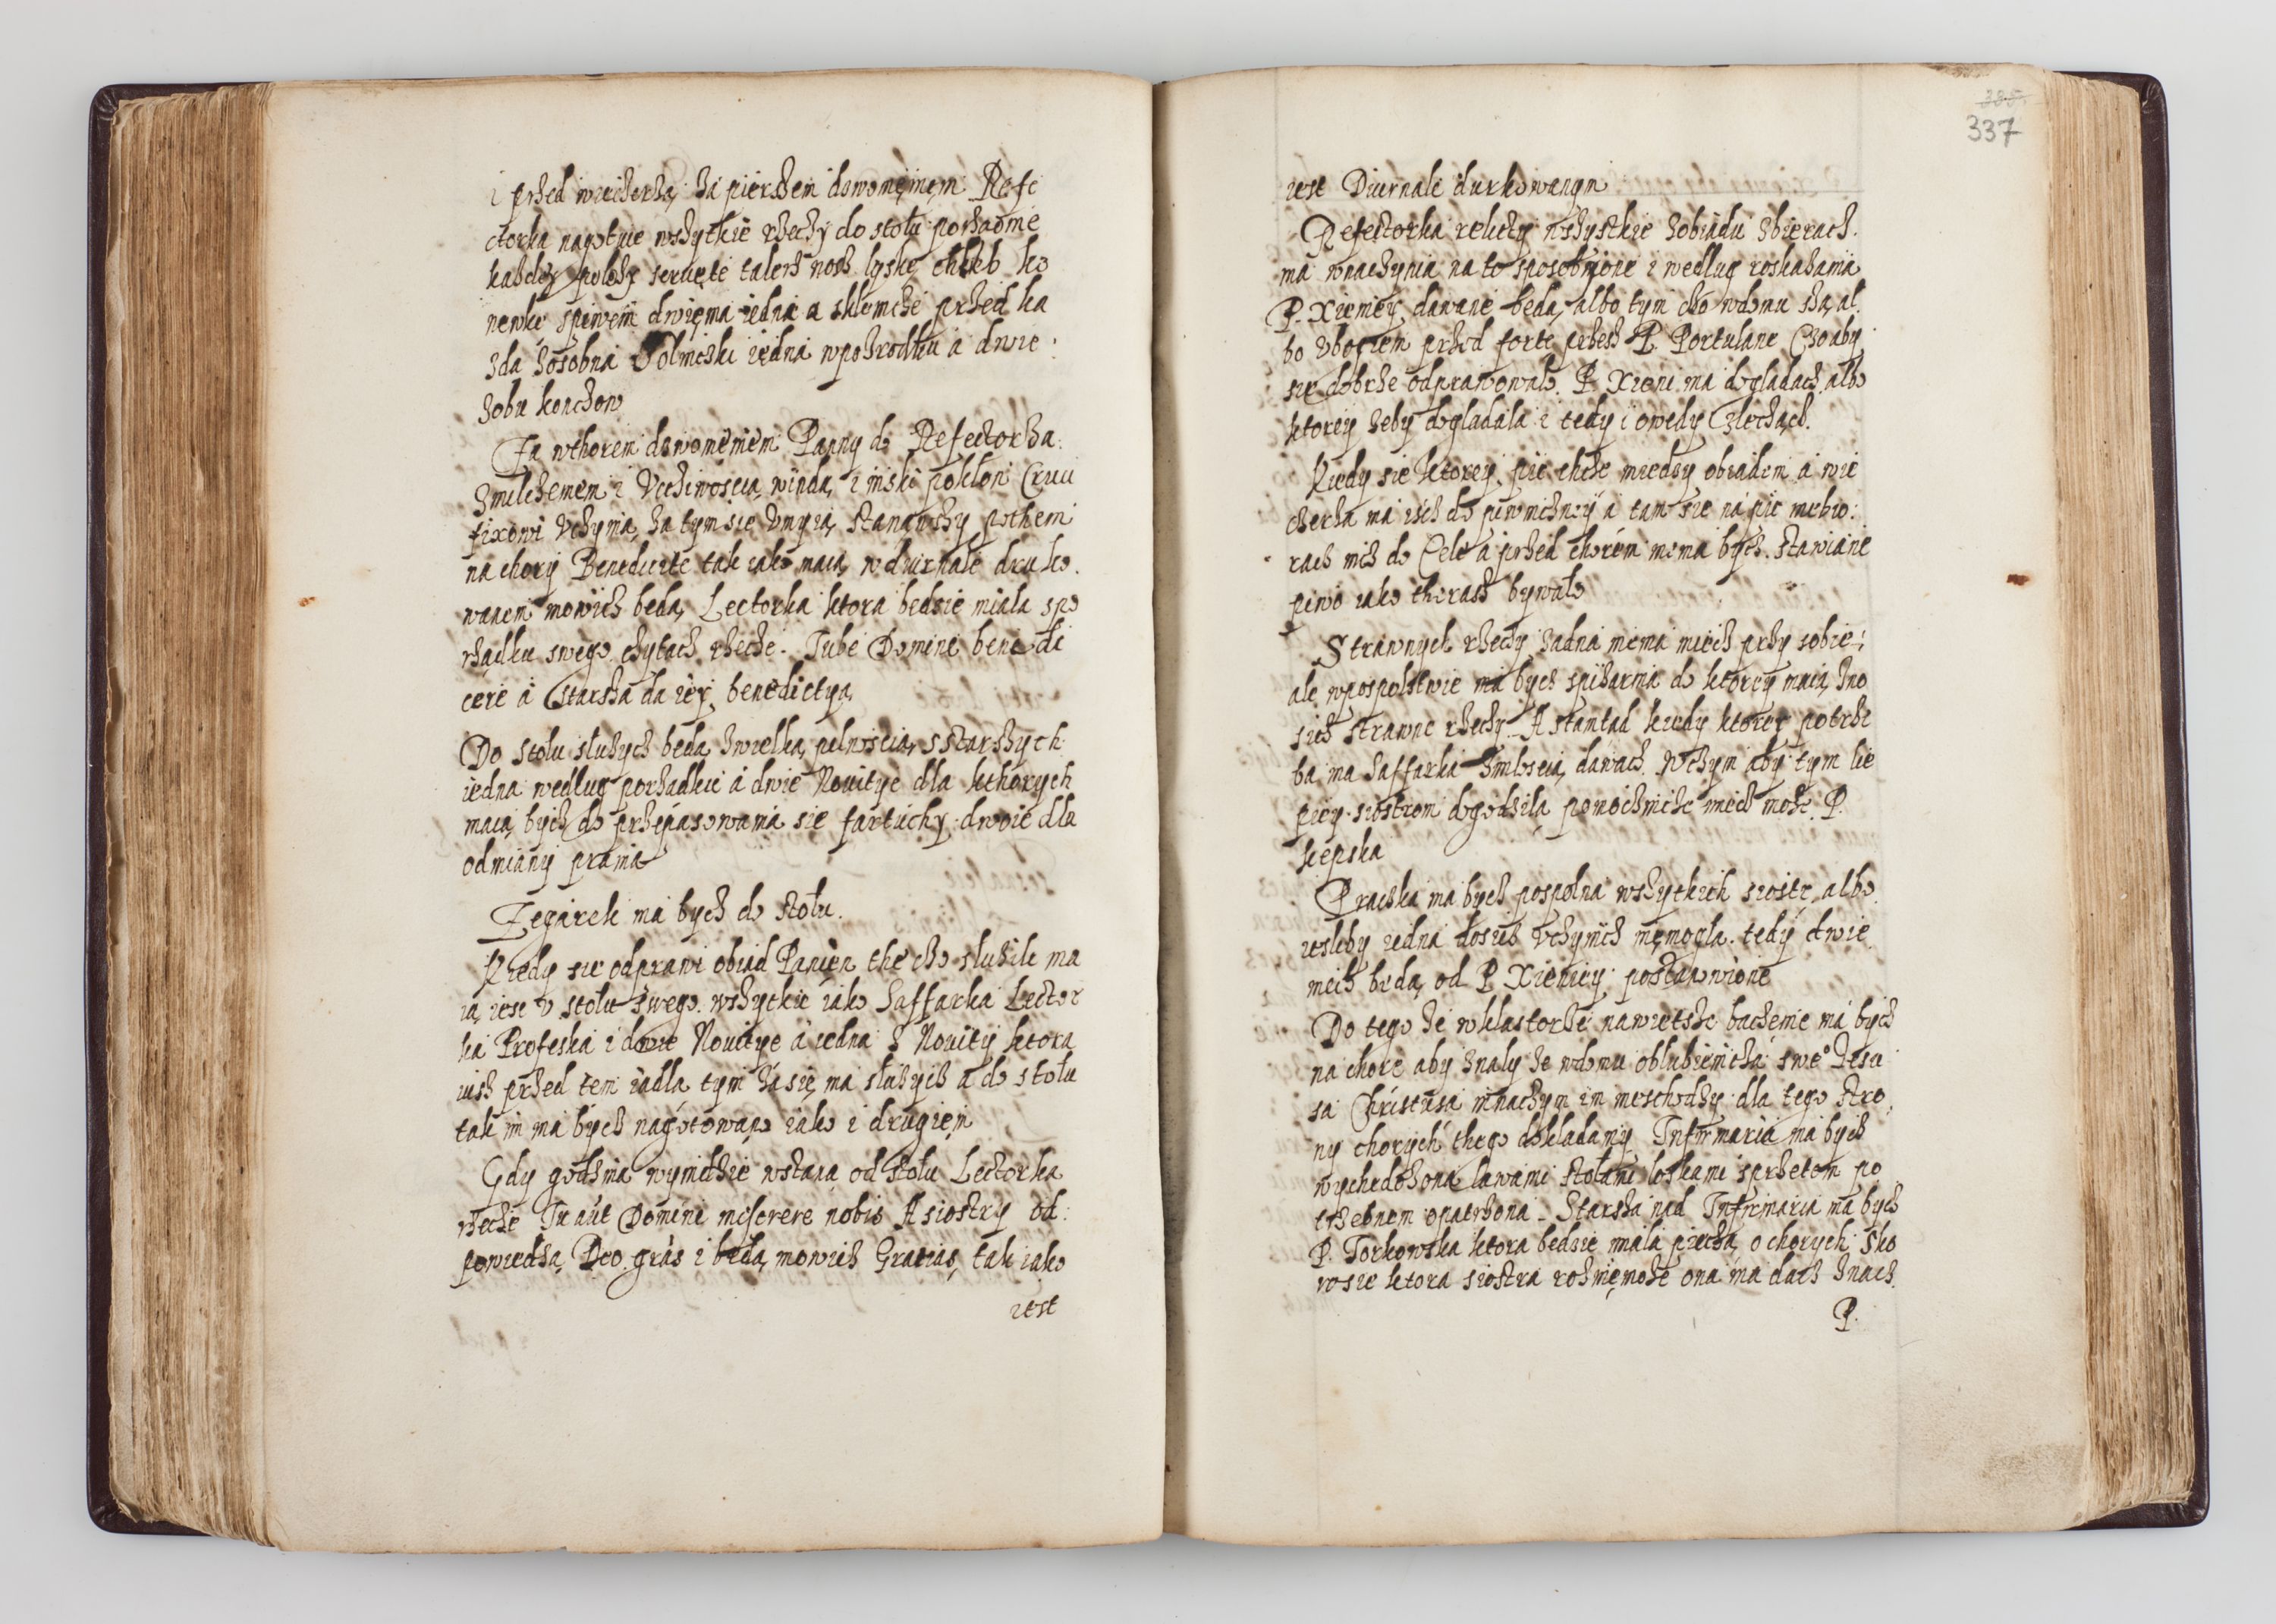 i prħed wiecżerħą, ħá pierśħem dżwonięniem Refe
ctorka nagotuie wsħytkie rħecħy do stołu porħądnie
kaħdey połoħy seruete talerħ nosħ lysħkę chleb ko
newkę spiwem dwięma iedna a sklenicħe prħed ka
ħdą ħosobna Solnicħki iedna wposrodku a dwie
ħobu konczow
Za wthorem dzwonieniem Panny do Refectorħa
ħmilcħeniem i Vcħciwoscią wnidą, i niski poklon Cruci
fixowi Vcħynią, ħa tym sie Vmyią, stanąwsħy pothem
na chory Benedicite tak iako maią, w diurnale druko
wanem mowicħ będą, Lectorka ktora bedzie miala spo
rħadku swego cħytacħ rħecħe. Iube Domine bene di
cere á Starsħa da iey benedictyą
Do stolu sluħycħ będą ħwielką pilnoscią, ħ Starsħych
iedna wedlug porħadku á dwie Nouitye dla kthorych
maią bycħ do prħepásowania sie fartuchy dwoie dla
odmiány prania
Zegárek má bycħ do stołu.
Kiedy sie odprawi obiad Panięn the cżo sluħily ma
ią iesc v stołu swego wsħytkie iáko Saffarka Lector
ka Profeska i dwie Nouitye á iedna ħ Nouity ktora
iusħ prħed tem iadla tym ħásię ma słuħycħ a do stołu
tak im má bycħ nagotowano iako i drugiem
Gdy godħina wynidħie wstáną od stołu Lectorka
rħecħe Tu aut Domine miserere nobis A siostry od
powiedħą Deo grás i będą mowicħ Gratias, tak iako
iest
385
337
iest Diurnale durkowanyn
Refectorka relicty wsħystkie ħobiadu ħbieracħ
má wnacħynia na to sposobnione i wedlug roskaħania
P. Xieniey dawane będą, albo tym cżo wdomu są, al
bo Vbogiem prħed forte prħesħ P. Portulane Cżo aby
sie dobrħe odprawowało P. Xieni má doglądacħ albo
ktorey ħeby doglądala i tedy i owedy Zlecħącħ
Kiedy sie ktorey pić chcħe miedzy obiadem á wie
cħerħa ma iscħ do piwnicħney á tam sie nápić nicbio
racħ nicħ do Cele á prħed chorem nima bycħ stawiane
piwo iako therasħ bywało
Strawnych rħecħy ħadna niema miecħ prħy sobie
ale wpospolstwie má bycħ spiħarnia do ktorey maią ħno
sicħ strawne rħecħy A stamtąd kiedy ktorey potrħe
ba ma Saffarka ħmiłoscią dawacħ wcħym aby tym lie
piey siostrom dogodħila pomocħnicħe miecħ moħe P.
Kępska
Pracħka má bycħ pospolna wsħytkich siostr, albo
iesliby iedna dosicħ Vcħynicħ niemogla tedy dwie
niecħ będą od P Xieniey postanowione
Do tego ħe wklastorħe nawietsħe bacħenie má bycħ
na chore aby ħnaly ħe wdomu oblubienicħa swe° Iesu
sa Christusa innacħym im nieschodħy dla tego stro
ny chorych thego dokladamy Infirmaria má bycħ
wychedoħona lawami stołami loskami sprħetem po
trħebnem opatrħona Starsħa nad Infirmaria ma bycħ
P. Torkowska ktora bedzie miala piecħą o chorych sko
ro sie ktora siostra roħniemoħe ona ma dacħ ħnacħ
P.